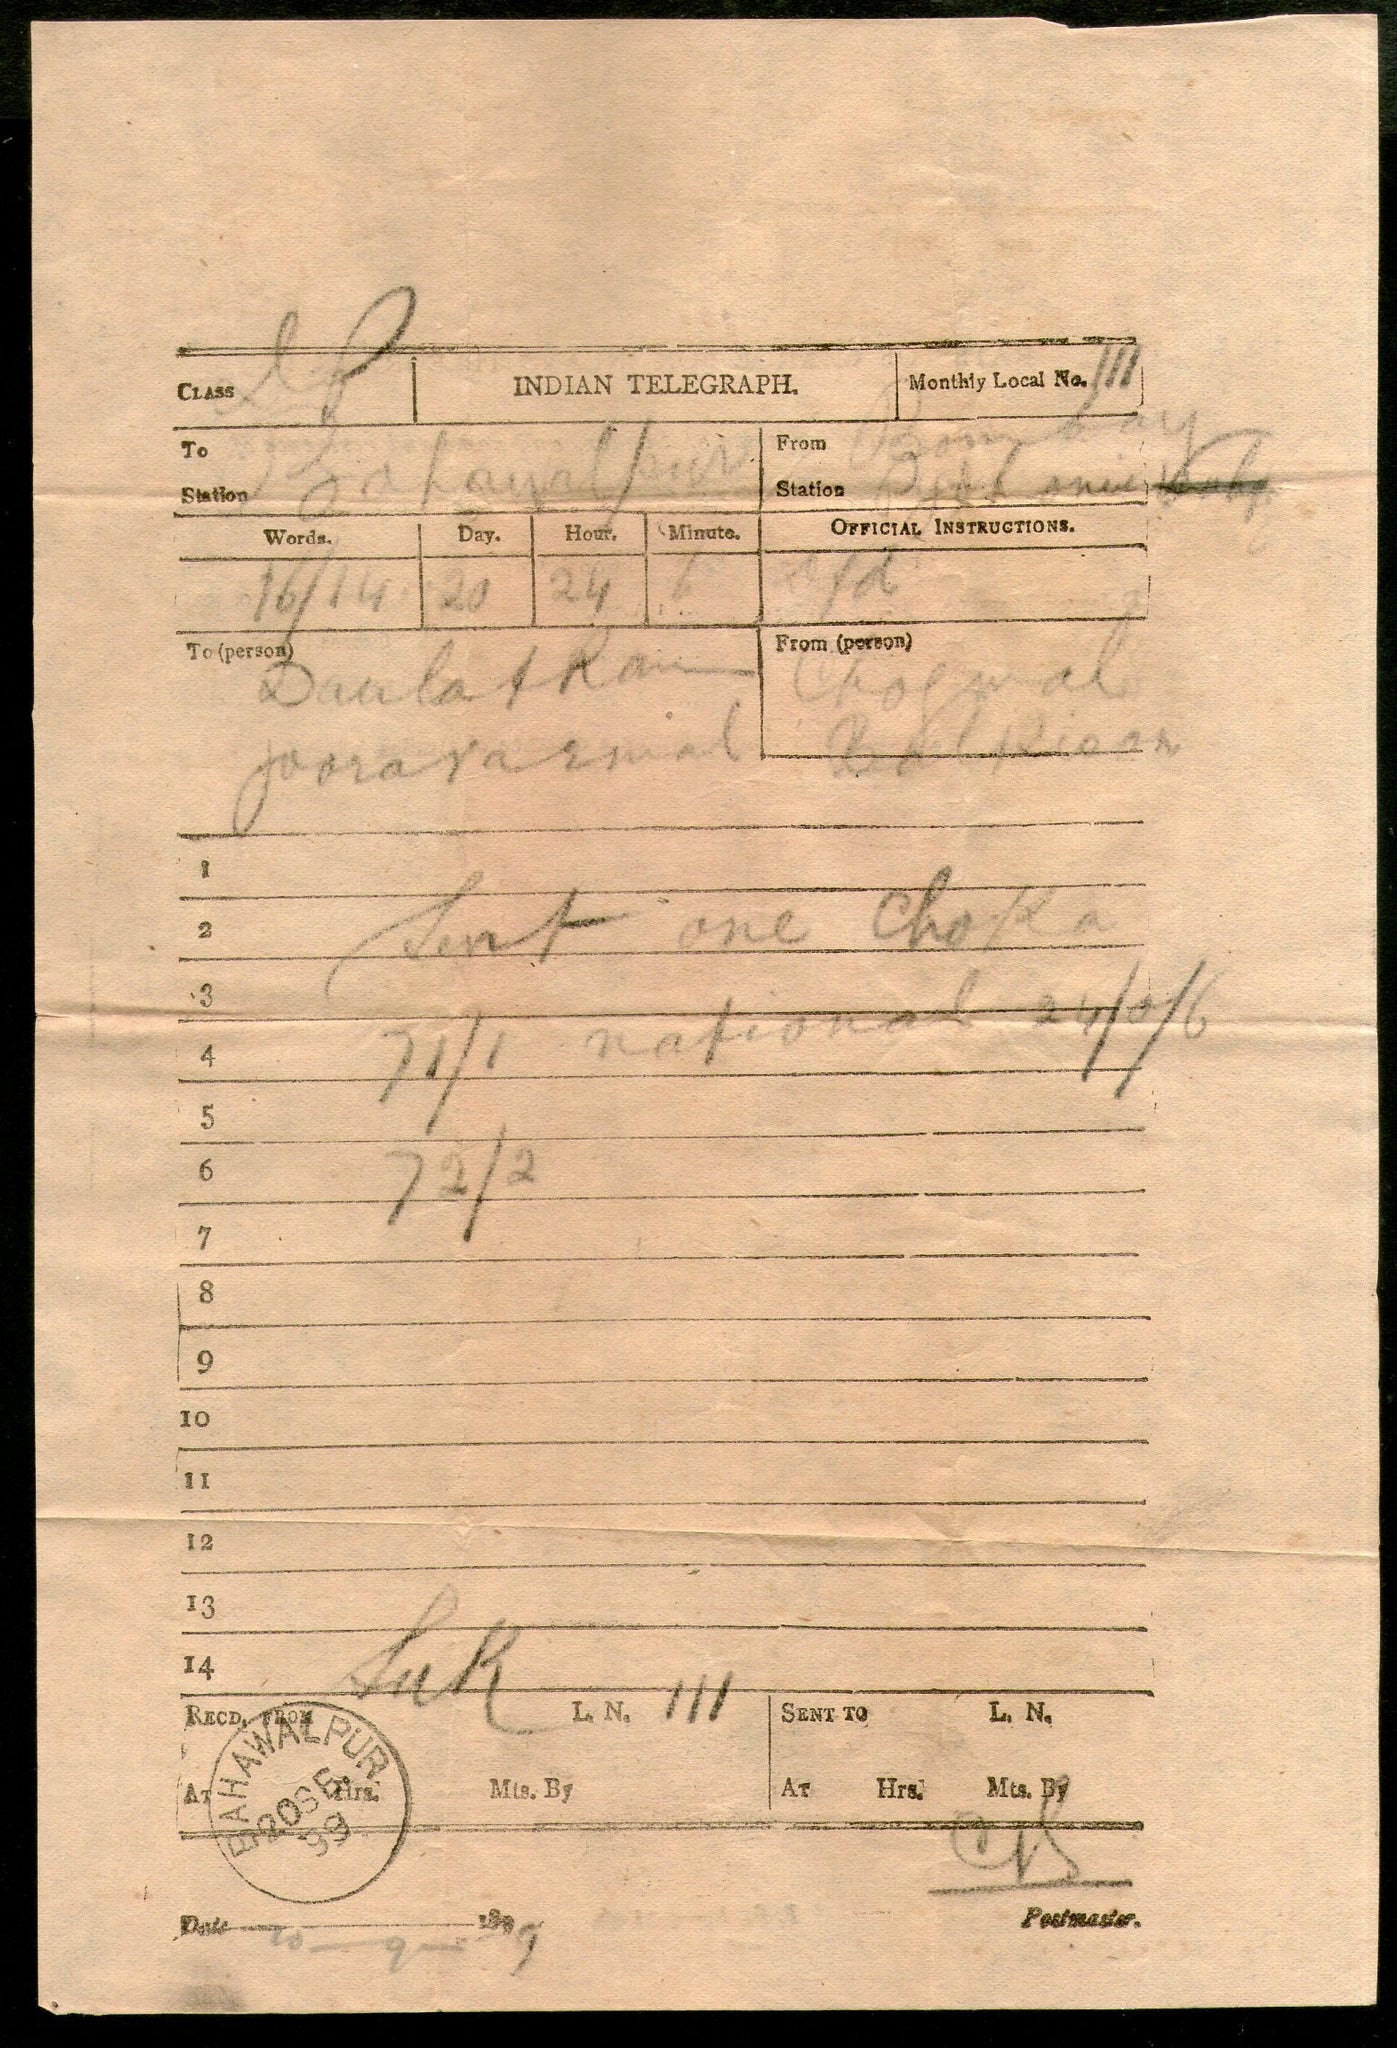 CLASS INDIAN TELEGRAPH. Monthly Local No. 111
To Station Bahawalpur From Station Bombay
Words. Day. Hour. Minute. OFFICIAL INSTRUCTIONS.
16/14 20 24 6
To (person) Daulatram From (person) Chogmal
jooravarmal Balkison
1
2 Sent one choka
3
4 71/1 national 24/0/6
5
6 72/2
7
8
9
10
11
12
13
14
RECD. FROM SuK L. N. 111 SENT TO L. N.
AT Hrs. Mts. By AT Hrs. Mts. By
BAHAWALPUR
20 SE
99
Date 20-9-1899 Postmaster.